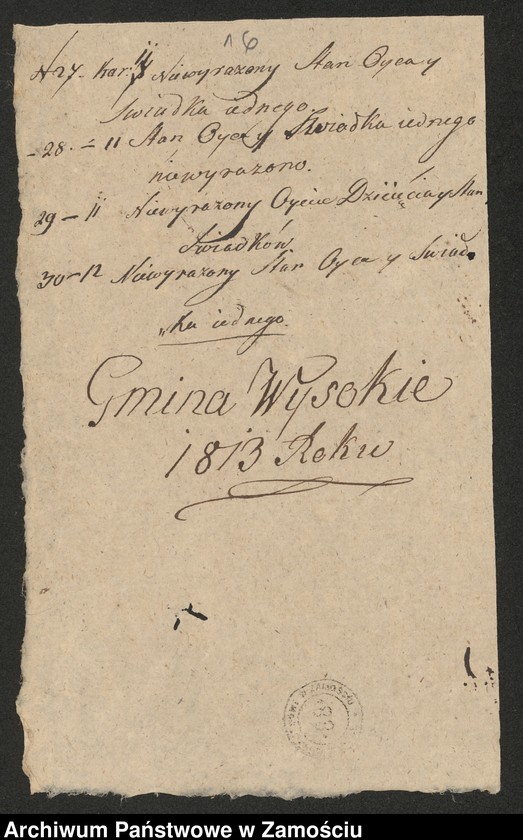 16
N 27 - kar: 11 Niewyrazony Stan Oyca y
Swiadka iednego
- 28. - 11 Stan Oyca y Swiadka iednego
niewyrazono.
29 - 11 Niewyrazony Oycie Dziecięcia y Stan
Swiadków
30 - 12 Niewyrazony Stan Oyca y Swiad„
„ka iednego.
Gmina Wysokie
1813 Roku
W ZAMOŚCIU
Archiwum Państwowe w Zamościu